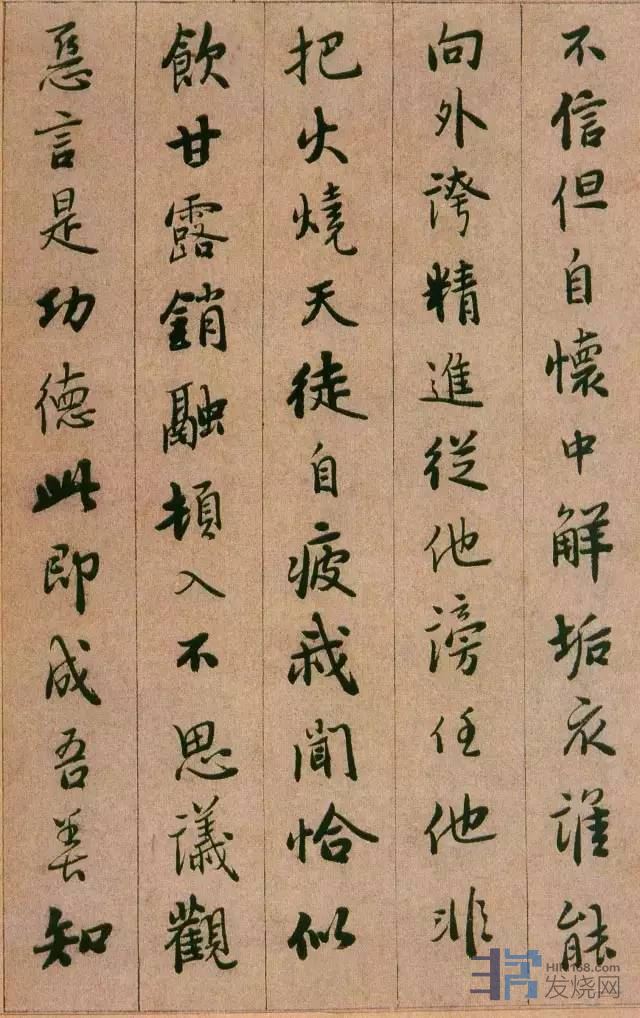 不信但自懷中解垢衣誰能
向外誇精進從他謗任他非
把火燒天徒自疲我聞恰似
飲甘露銷融頓入不思議觀
惡言是功德此即成吾善知
HIFI168.com
发烧网